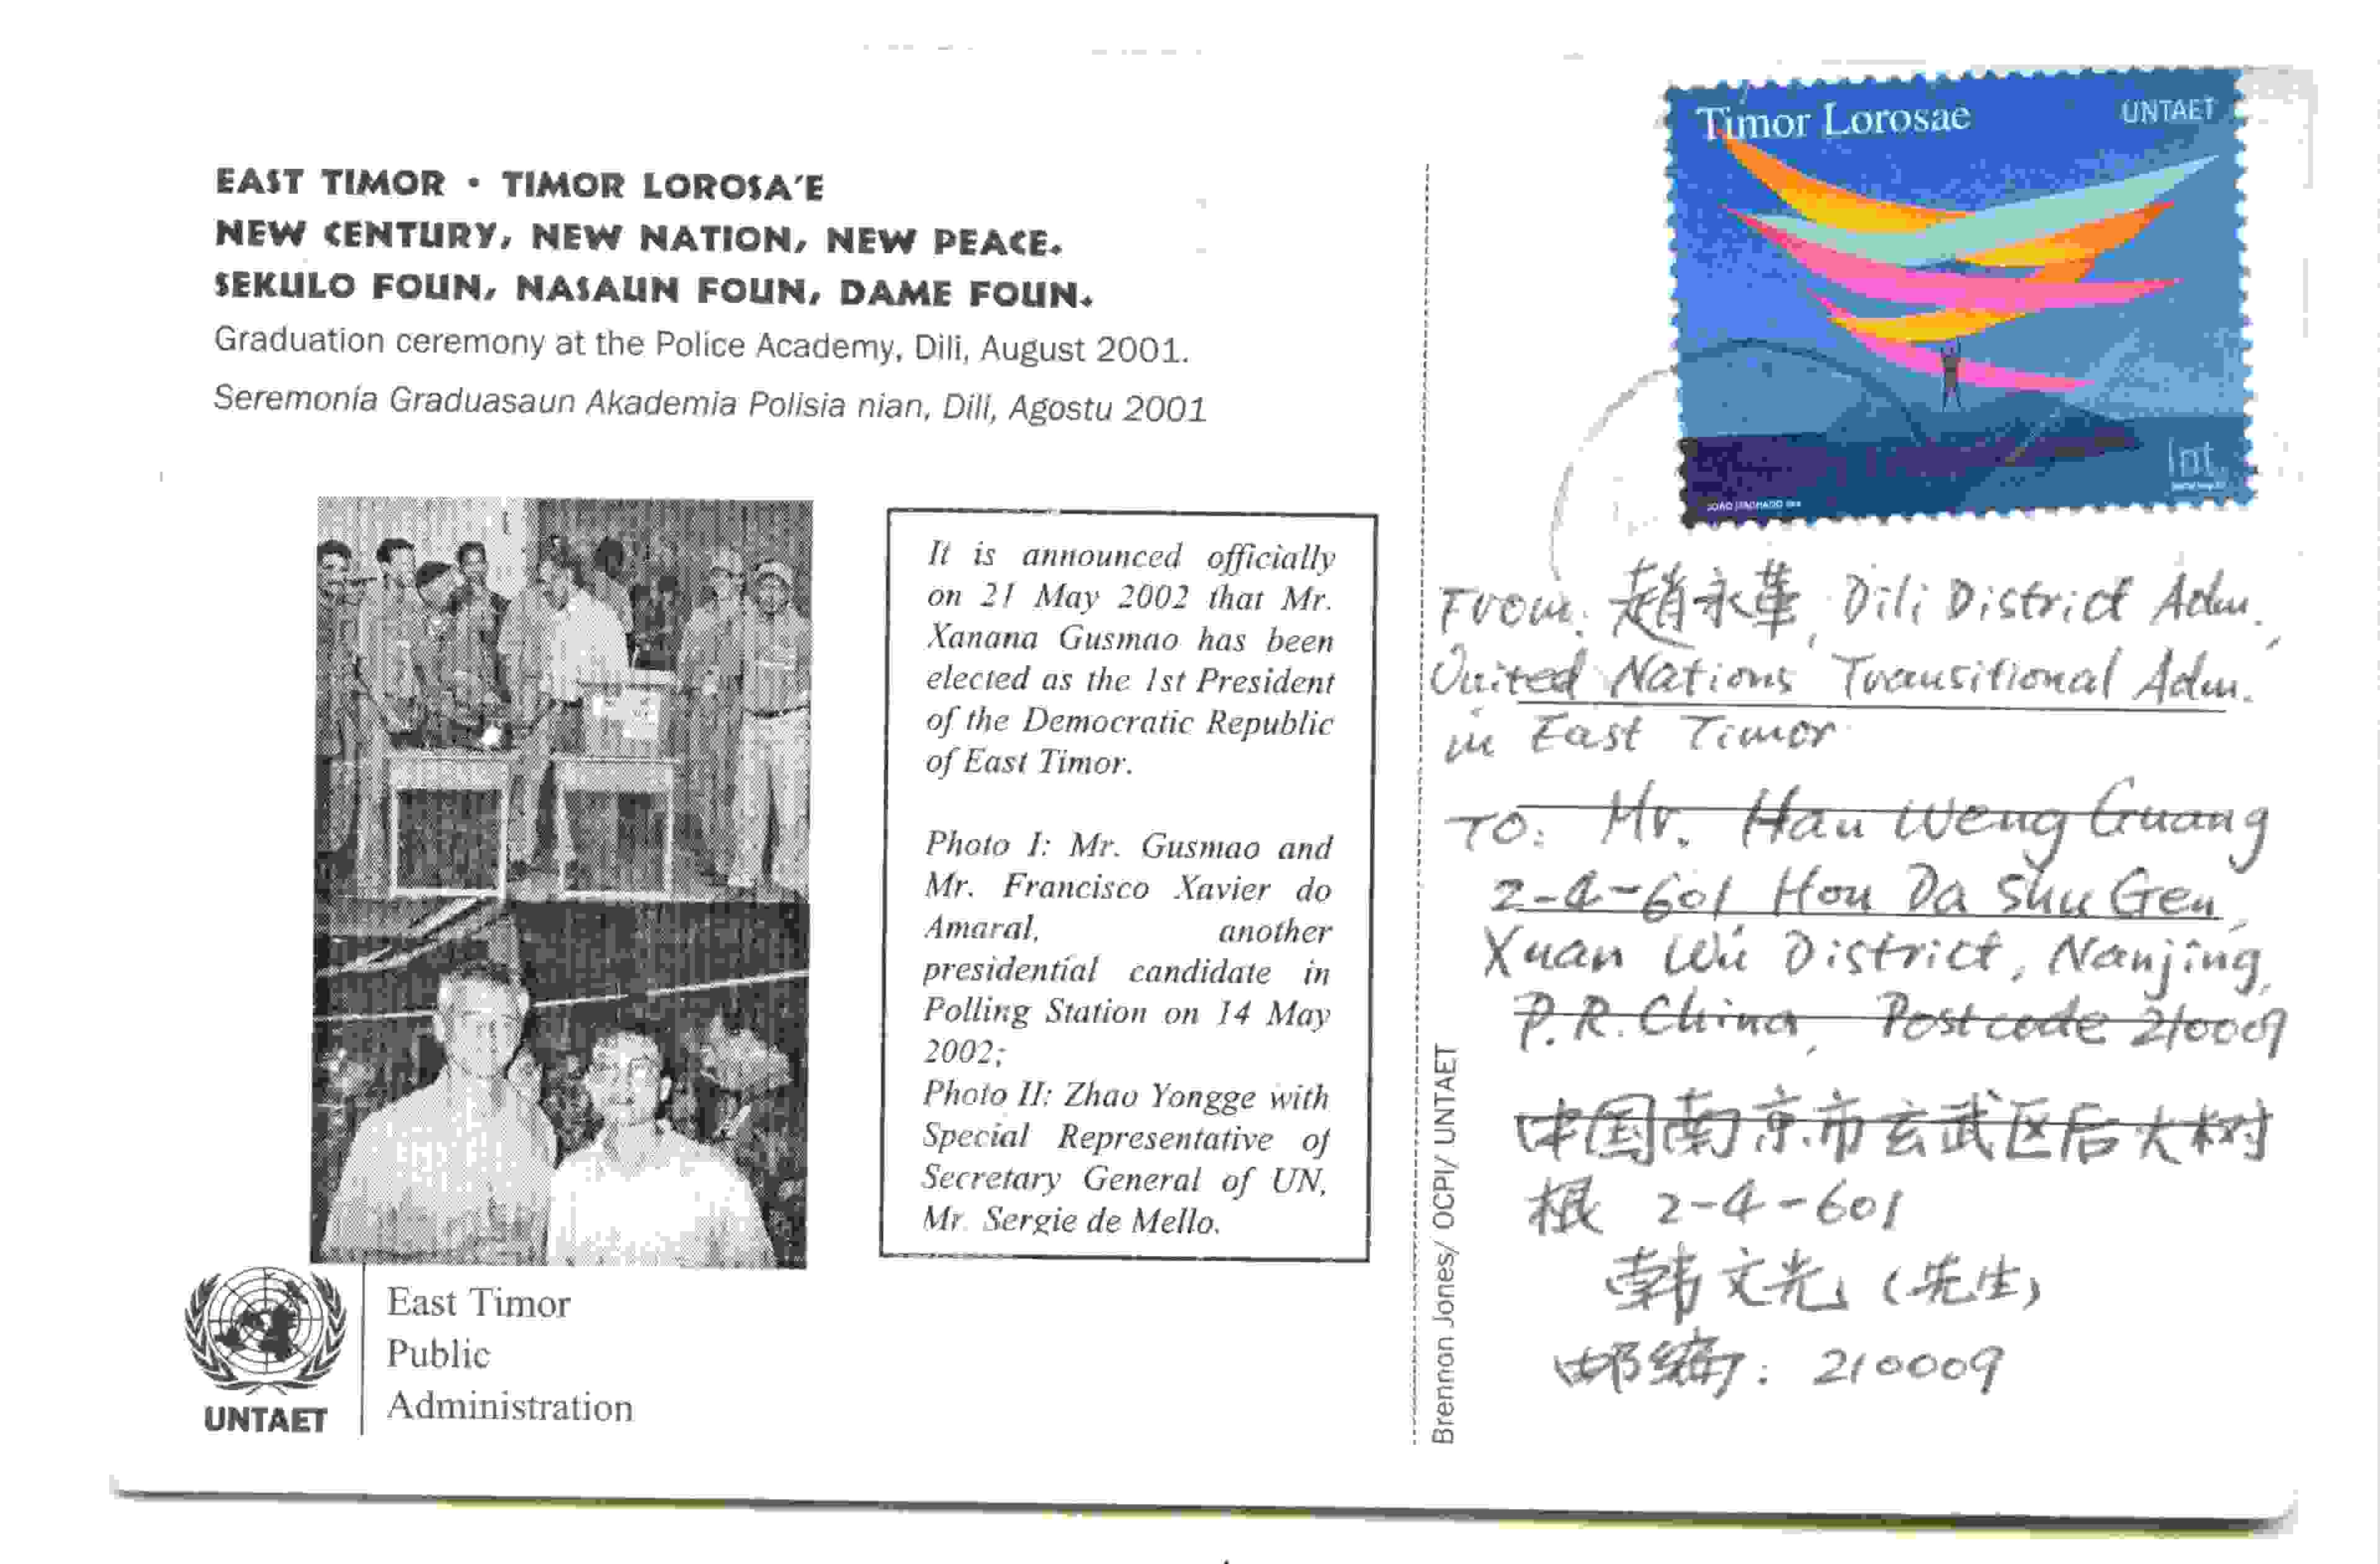 EAST TIMOR • TIMOR LOROSA'E
NEW CENTURY, NEW NATION, NEW PEACE.
SEKULO FOUN, NASAUN FOUN, DAME FOUN.
Graduation ceremony at the Police Academy, Dili, August 2001.
Seremonia Graduasaun Akademia Polisia nian, Dili, Agostu 2001
It is announced officially
on 21 May 2002 that Mr.
Xanana Gusmao has been
elected as the 1st President
of the Democratic Republic
of East Timor.
Photo I: Mr. Gusmao and
Mr. Francisco Xavier do
Amaral, another
presidential candidate in
Polling Station on 14 May
2002;
Photo II: Zhao Yongge with
Special Representative of
Secretary General of UN,
Mr. Sergie de Mello.
UNTAET
East Timor
Public
Administration
Brennon Jones/ OCPI/ UNTAET
Timor Lorosae
UNTAET
Int.
From: 赵永革, Dili District Adm.,
United Nations Transitional Adm.
in East Timor
TO: Mr. Han Weng Guang
2-4-601 Hou Da Shu Gen,
Xuan Wu District, Nanjing,
P.R.China, Postcode 210009
中国南京市玄武区后大树
根 2-4-601
韩文光 (先生)
邮编: 210009